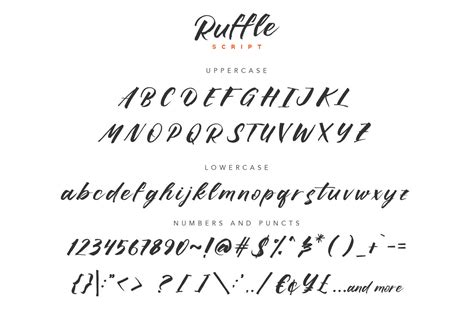 Ruffle
SCRIPT
UPPERCASE
ABCDEFGHIJKL
MNOPQRSTUVWXYZ
LOWERCASE
abcdefghijklmnopqrstuvwxyz
NUMBERS AND PUNCTS
1234567890~!@#$%^&*()_+`-=
{}|:"<> ?[]\;'../€¢¥£...and more